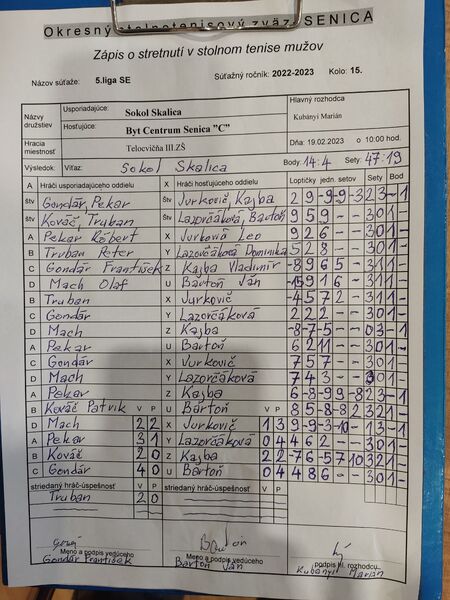 Okresný stolnotenisový zväz SENICA
Zápis o stretnutí v stolnom tenise mužov
Názov súťaže: 5.liga SE Súťažný ročník: 2022-2023 Kolo: 15.
Názvy družstiev Usporiadajúce: Sokol Skalica Hlavný rozhodca
Hosťujúce: Byt Centrum Senica "C" Kubányi Marián
Hracia miestnosť Telocvičňa III.ZŠ Dňa: 19.02.2023 o 10:00 hod.
Výsledok: Víťaz: Sokol Skalica Body 14:4 Sety 47:19
A Hráči usporiadajúceho oddielu X Hráči hosťujúceho oddielu Loptičky jedn. setov Sety Bod
štv Gondár, Pekar Štv Jurkovič, Kajba 2 9 -9 -9 -3 2 3 - 1
štv Kováč, Truban Štv Lazorčáková, Bartoň 9 5 9 - - 3 0 1 -
A Pekar Róbert X Jurkovič Leo 9 2 6 - - 3 0 1 -
B Truban Peter Y Lazorčáková Dominika 5 2 8 - - 3 0 1 -
C Gondár František Z Kajba Vladimír -8 9 6 5 - 3 1 1 -
D Mach Olaf U Bartoň Ján -15 9 1 6 - 3 1 1 -
B Truban X Jurkovič -4 5 7 2 - 3 1 1 -
C Gondár Y Lazorčáková 2 2 2 - - 3 0 1 -
D Mach Z Kajba -8 -7 -5 - - 0 3 - 1
A Pekar U Bartoň 6 2 11 - - 3 0 1 -
C Gondár X Jurkovič 7 5 7 - - 3 0 1 -
D Mach Y Lazorčáková 7 4 3 - - 3 0 1 -
A Pekar Z Kajba 6 -8 -9 9 -8 2 3 - 1
B Kováč Patrik V P U Bartoň V P 8 5 -8 -8 2 3 2 1 -
D Mach 2 2 X Jurkovič 1 3 9 -9 -3 -10 - 1 3 - 1
A Pekar 3 1 Y Lazorčáková 0 4 4 6 2 - - 3 0 1 -
B Kováč 2 0 Z Kajba 2 2 -7 6 -5 7 10 3 2 1 -
C Gondár 4 0 U Bartoň 0 4 4 8 6 - - 3 0 1 -
striedaný hráč-úspešnosť V P striedaný hráč-úspešnosť V P
Truban 2 0
Meno a podpis vedúceho Meno a podpis vedúceho podpis hl. rozhodcu
Gondár František Bartoň Ján Kubányi Marián